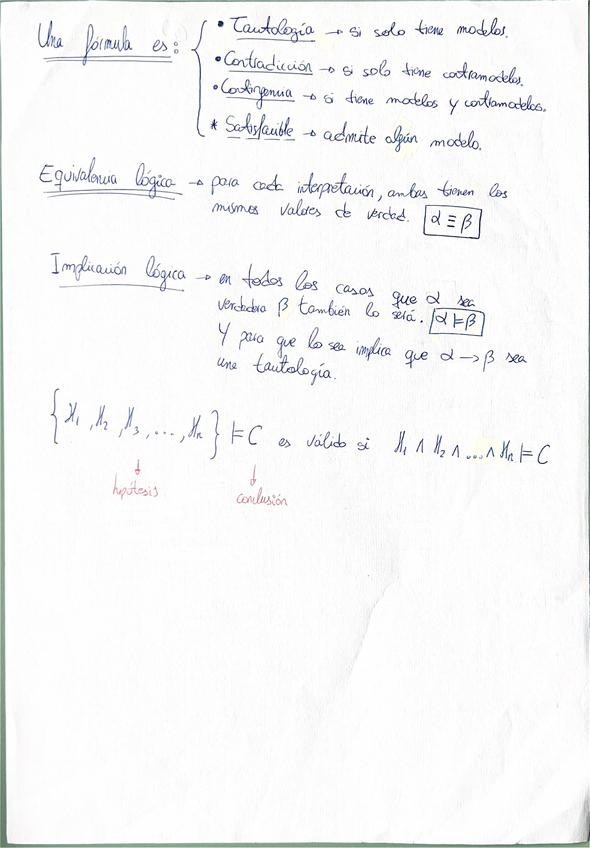 Una fórmula es:
• Tautología → si solo tiene modelos.
• Contradicción → si solo tiene contramodelos.
• Contingencia → si tiene modelos y contramodelos.
* Satisfacible → admite algún modelo.
Equivalencia lógica → para cada interpretación, ambas tienen los
mismos valores de verdad. α ≡ β
Implicación lógica → en todos los casos que α sea
verdadera β también lo será. α ⊨ β
Y para que lo sea implica que α → β sea
una tautología.
{H₁, H₂, H₃, ..., Hₙ} ⊨ C es válido si H₁ ∧ H₂ ∧ ... ∧ Hₙ ⊨ C
↓ ↓
hipótesis conclusión